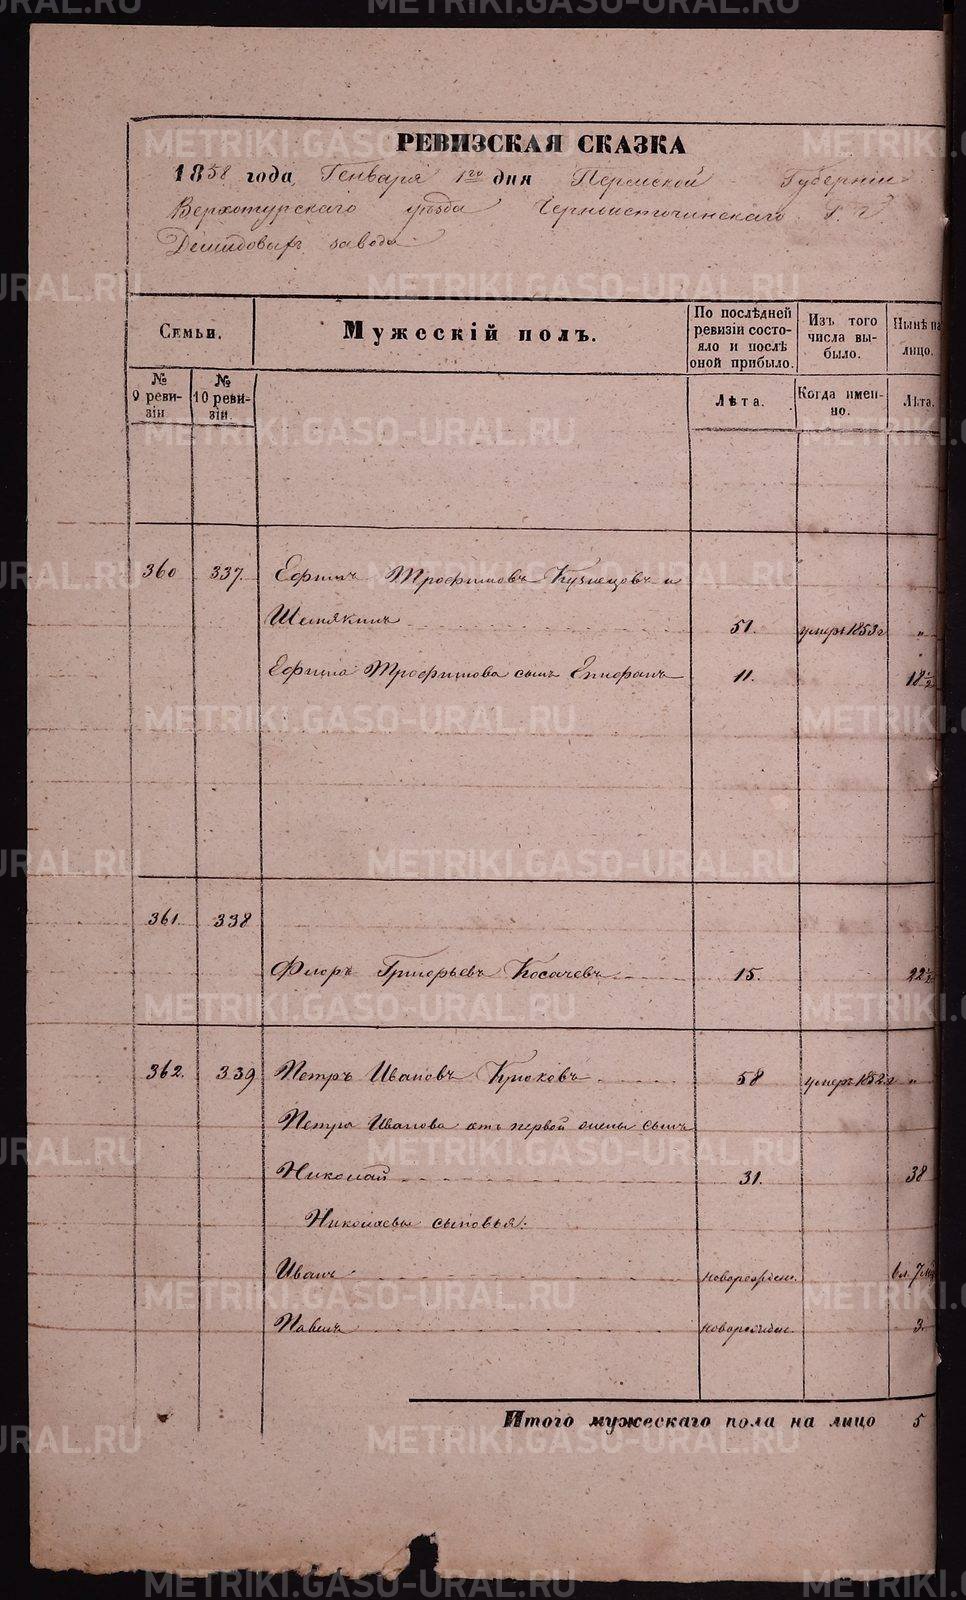 РЕВИЗСКАЯ СКАЗКА
1858 года, Генваря 1го дня Пермской Губернiи
Верхотурскаго уѣзда Черноисточинскаго Г. г.
Демидовыхъ завода.
Семьи.
Мужескій полъ.
По послѣдней ревизіи состояло и послѣ оной прибыло.
Изъ того числа выбыло.
Нынѣ на лицо.
№ 9 ревизіи
№ 10 ревизіи.
Лѣта.
Когда именно.
Лѣта.
360 337. Ефимъ Трофимовъ Кузнецовъ и
Шемякинъ 51. умеръ 1853 г „
Ефима Трофимова сынъ Епифанъ 11. 18 1/2
361. 338
Флоръ Григорьевъ Косачевъ 15. 22 1/2
362. 339 Петръ Ивановъ Крюковъ 58 умеръ 1852 г „
Петра Иванова отъ первой жены сынъ
Николай 31. 38
Николаевы сыновья:
Иванъ новорожден. 6 л. 7 м
Павелъ новорожден. 3.
Итого мужескаго пола на лицо 5
METRIKI.GASO-URAL.RU